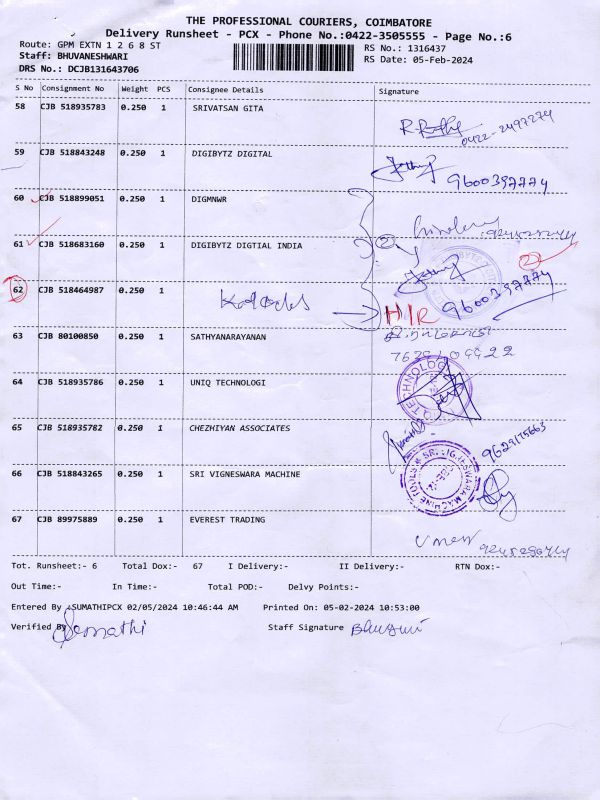 THE PROFESSIONAL COURIERS, COIMBATORE
Delivery Runsheet - PCX - Phone No.:0422-3505555 - Page No.:6
Route: GPM EXTN 1 2 6 8 ST
RS No.: 1316437
Staff: BHUVANESHWARI
RS Date: 05-Feb-2024
DRS No.: DCJB131643706
S No Consignment No Weight PCS Consignee Details Signature
58 CJB 518935783 0.250 1 SRIVATSAN GITA
0422-2497274
59 CJB 518843248 0.250 1 DIGIBYTZ DIGITAL
9600397774
60 CJB 518899051 0.250 1 DIGMNWR
61 CJB 518683160 0.250 1 DIGIBYTZ DIGTIAL INDIA
2
2
62 CJB 518464987 0.250 1
H/R 9600397774
63 CJB 80100850 0.250 1 SATHYANARAYANAN
64 CJB 518935786 0.250 1 UNIQ TECHNOLOGI
TECHNOLOG
65 CJB 518935782 0.250 1 CHEZHIYAN ASSOCIATES
9629175663
66 CJB 518843265 0.250 1 SRI VIGNESWARA MACHINE
67 CJB 89975889 0.250 1 EVEREST TRADING
Tot. Runsheet:- 6 Total Dox:- 67 I Delivery:- II Delivery:- RTN Dox:-
Out Time:- In Time:- Total POD:- Delvy Points:-
Entered By :SUMATHIPCX 02/05/2024 10:46:44 AM Printed On: 05-02-2024 10:53:00
Verified By Sumathi Staff Signature